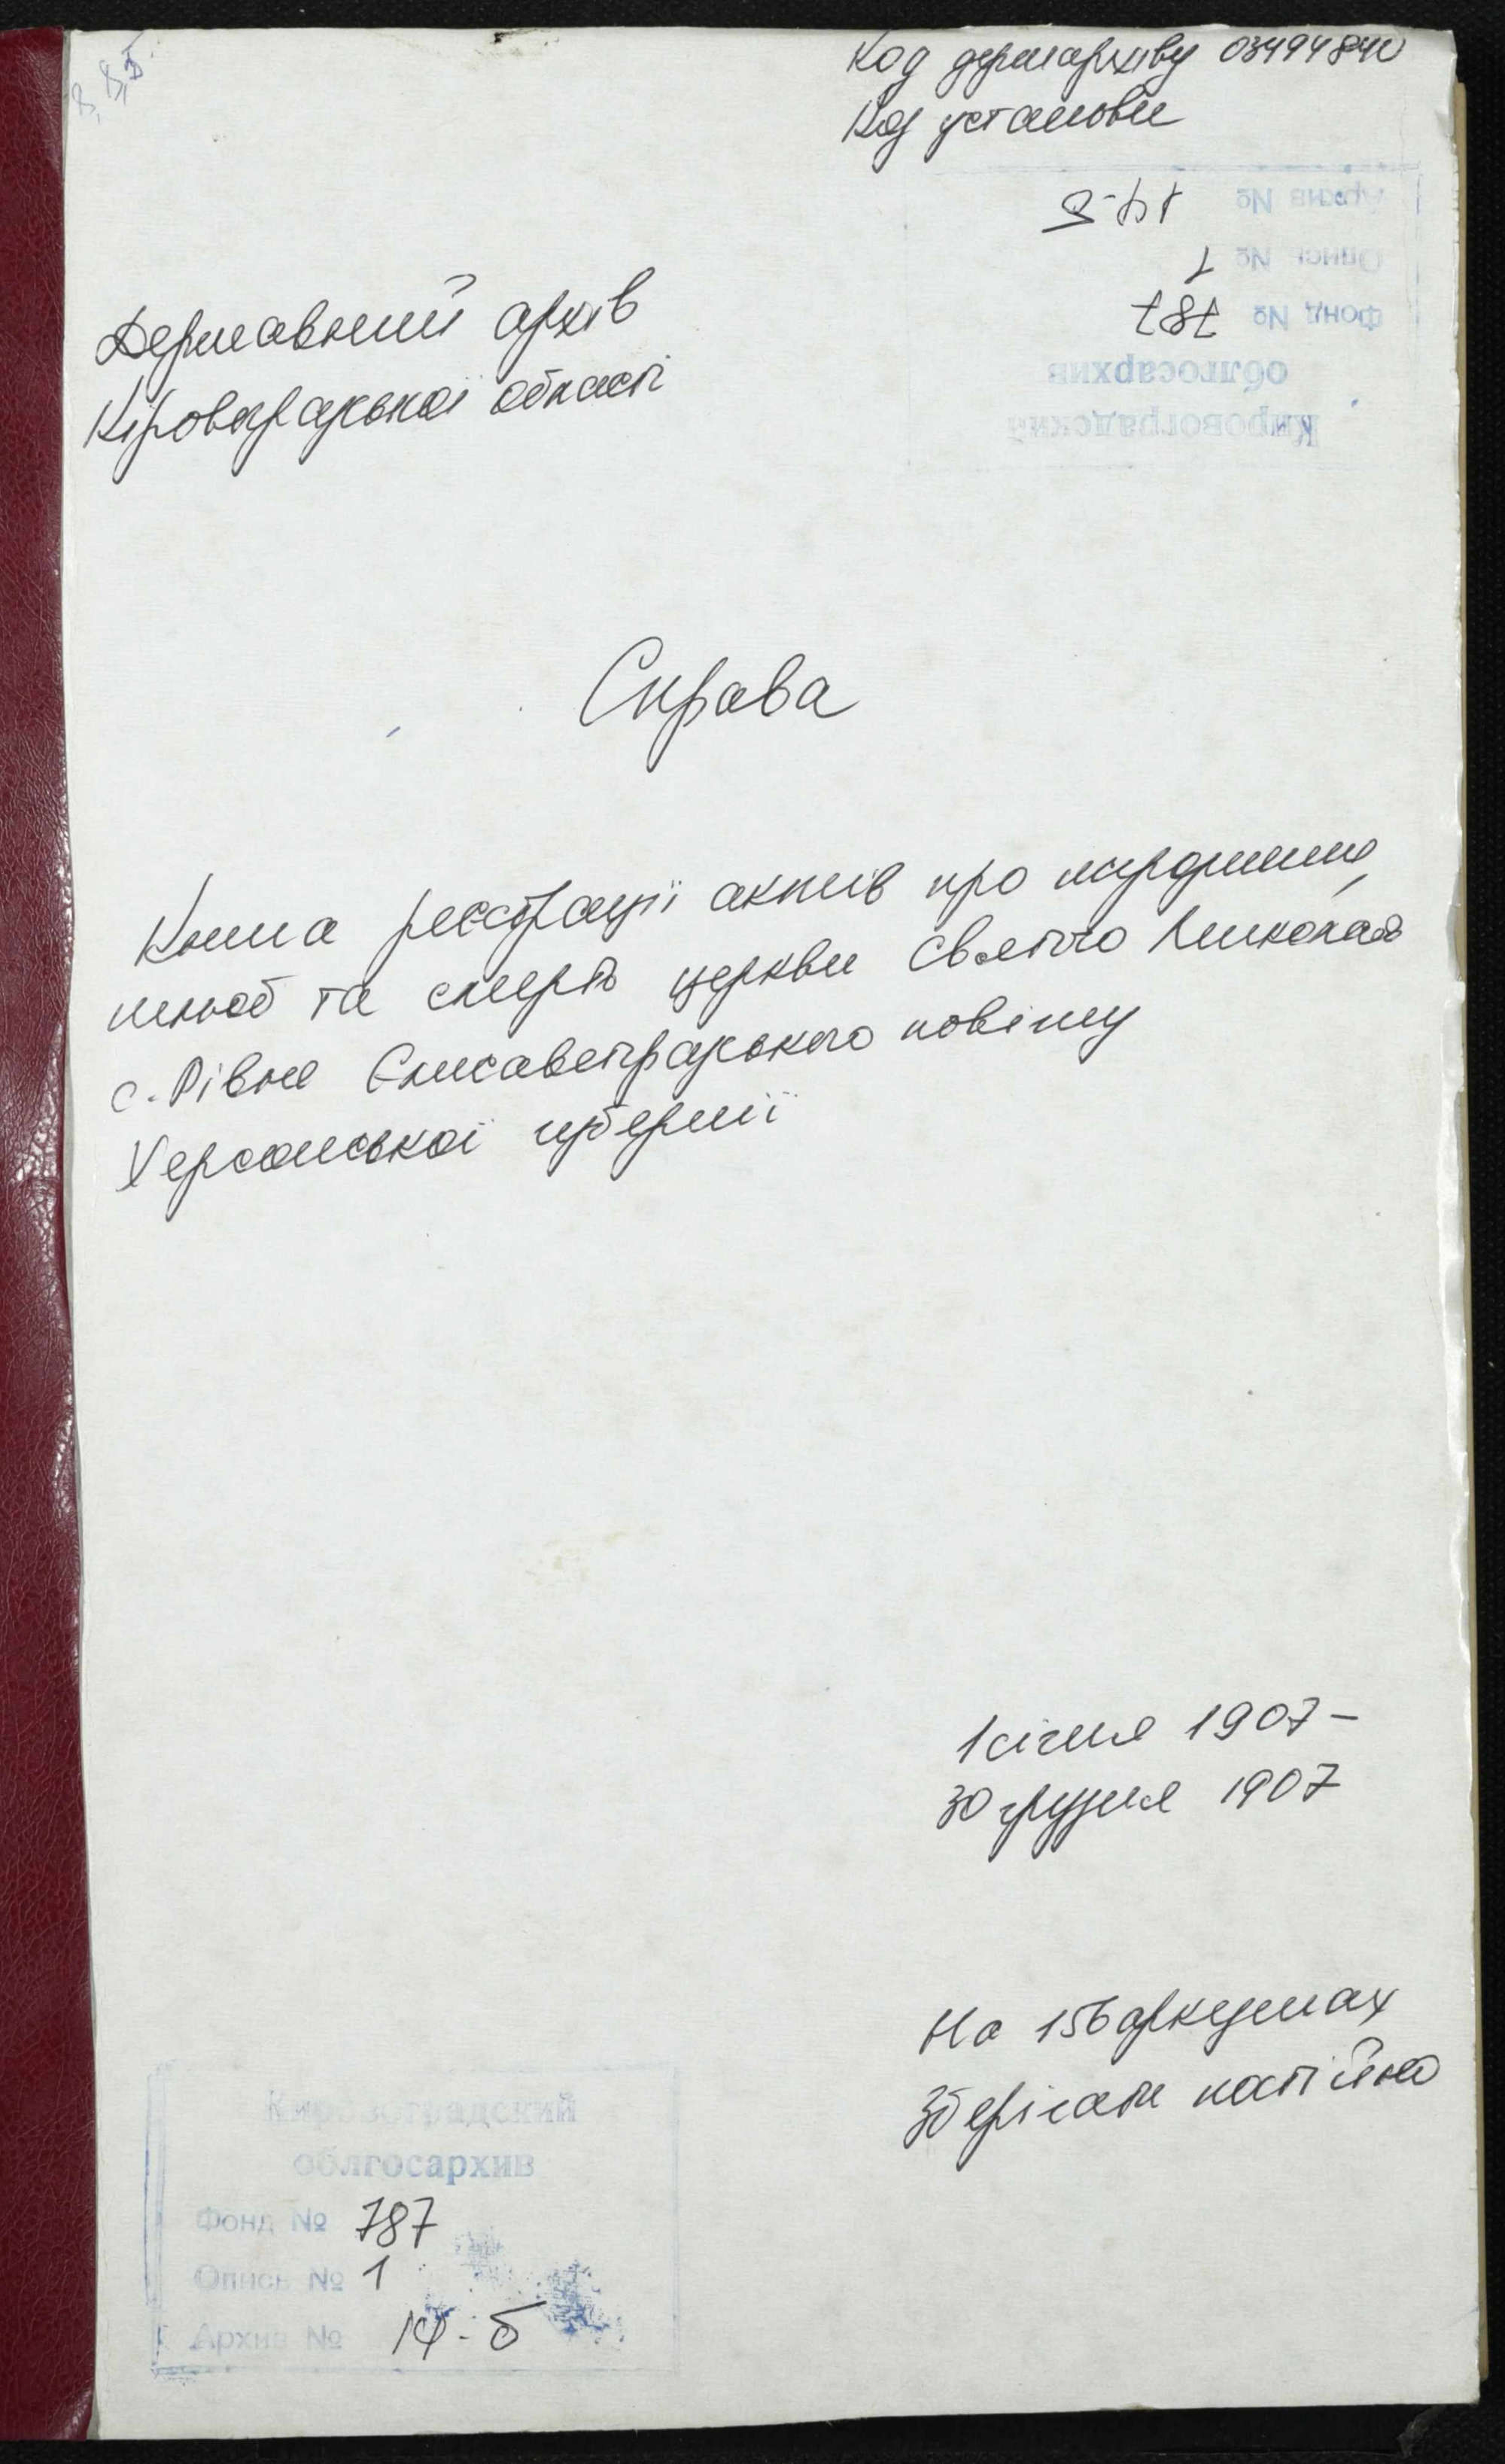 В, В, Б.
Код держархіву 03494840
Код установи
Архив № 14-б
Опись № 1
Фонд № 787
облгосархив
Кировоградский
Державний архів
Кіровоградської області
Справа
Книга реєстрації актів про народження,
шлюб та смерть церкви Святого Миколая
с. Рівне Єлисаветградського повіту
Херсонської губернії
1 січня 1907 –
30 грудня 1907
На 156 аркушах
Зберігати постійно
Кировоградский
облгосархив
Фонд № 787
Опись № 1
Архив № 14-б